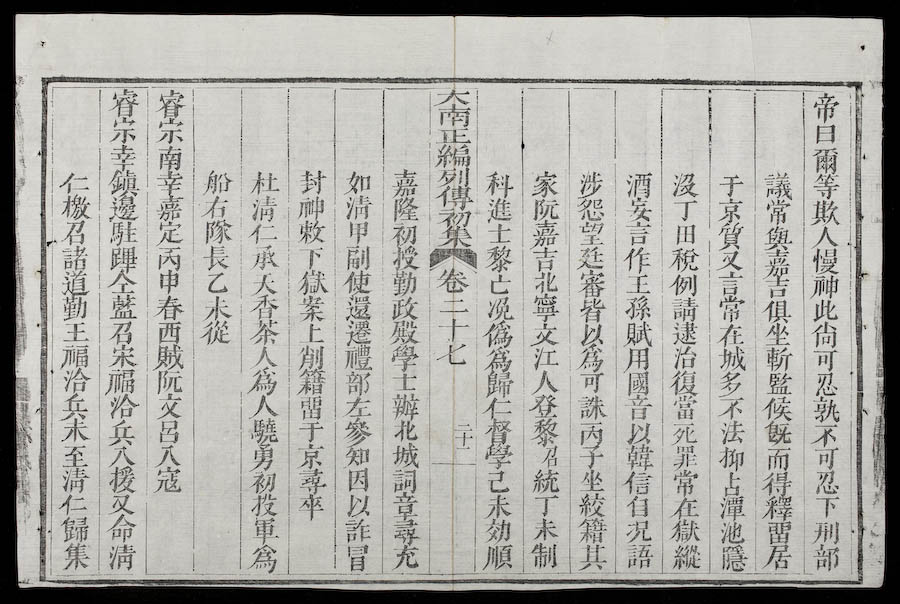 帝曰爾等欺人慢神此尙可忍孰不可忍下刑部
議常與嘉吉俱坐斬監候旣而得釋畱居
于京質又言常在城多不法抑占潭池隱
沒丁田稅例請逮治復當死罪常在獄縱
酒妄言作王孫賦用國音以韓信自況語
涉怨望廷審皆以爲可誅丙子坐絞籍其
家阮嘉吉北寧文江人登黎昭統丁未制
科進士黎亡況僞爲歸仁督學己未効順
大南正編列傳初集 卷二十七 二十二
嘉隆初授勤政殿學士辦北城詞章尋充
如淸甲副使還遷禮部左參知因以詐冒
封神敕下獄案上削籍畱于京尋卒
杜淸仁承天香茶人爲人驍勇初投軍爲
船右隊長乙未從
睿宗南幸嘉定丙申春西賊阮文呂入寇
睿宗幸鎭邊駐蹕仝藍召宋福洽兵入援又命淸
仁檄召諸道勤王福洽兵未至淸仁歸集